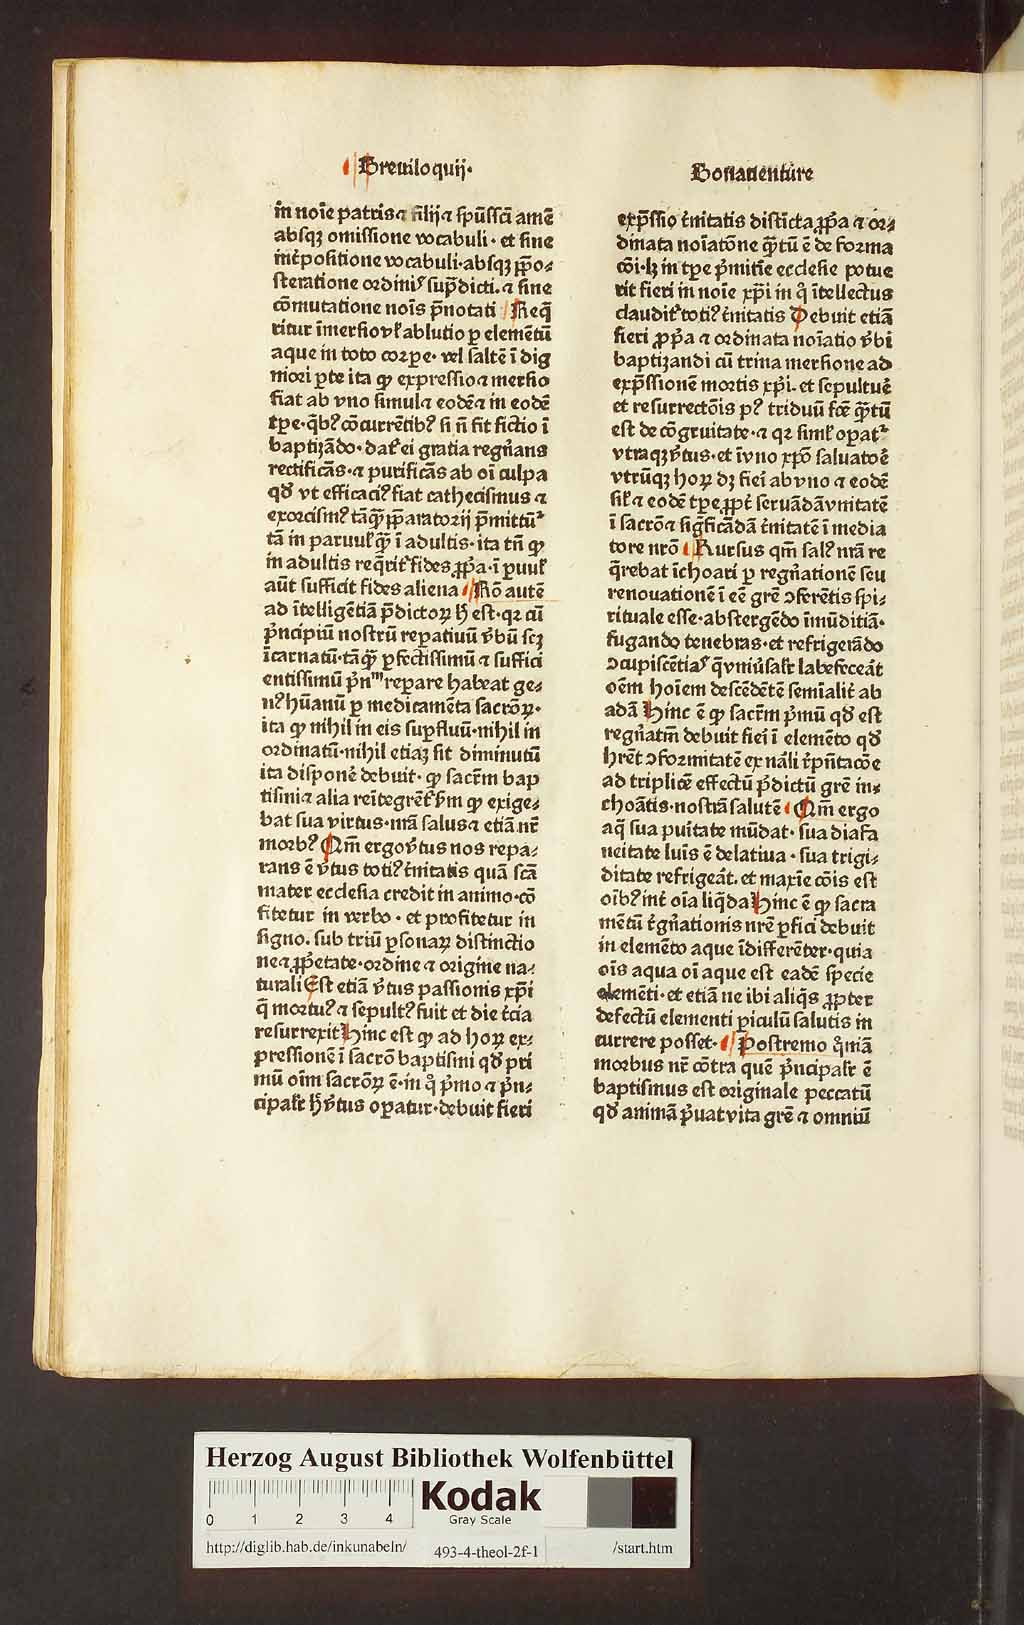 Breuiloquij·
in noīe patris ⁊ filij ⁊ spūsscī amē
absqꝫ omissione vocabuli · et sine
int̄positione vocabuli·absqꝫ p̄po-
steratione ordinis sup̄dicti·⁊ sine
cōmutatione noīs p̄notati Req̄
ritur īmersio vl̛ ablutio ꝑ elemētū
aque in toto corꝑe· vel saltē ī dig
niori ꝑte ita ꝙ expressio ⁊ mersio
fiat ab vno simul ⁊ eodē ⁊ in eodē
tꝑe·q̄bꝰ cōcurrētibꝰ si ñ sit fictio ī
baptizādo·dat̛ ei gratia regñans
rectificās·⁊ purificās ab oī culpa
qd̛ vt efficaciꝰ fiat cathecismus ⁊
exorcismꝰ tāq̄ꝫ p̄paratorij p̄mittū᷑
tā in paruul̛ q̄ꝫ ī adultis·ita tñ ꝙ
in adultis req̄rit̛ fides ꝓp̄a·ī ꝑuul̛
aūt sufficit fides aliena Rō autē
ad ītelligētiā p̄dictoꝝ h̄ est·qꝛ cū
pͥncipiū nostrū reꝑatiuū v̄bū scꝫ
īcarnatū·tāq̄ꝫ ꝑfectissimū ⁊ suffici
entissimū pͥnm reꝑare habeat ge-
nꝰ hūanū ꝑ medicamēta sacrōꝝ·
ita ꝙ nihil in eis suꝑfluū·nihil in
ordinatū·nihil etiaꝫ sit diminutū
ita disponēr debuit·ꝙ sacrm̄ bap
tismi ⁊ alia reītegrēt̛ ẜm ꝙ exige-
bat sua virtus·nr̄a salus ⁊ etiā nr̄
morbꝰ Qm̄ ergo v̄tus nos repa-
rans ē v̄tus totiꝰ t̄nitatis quā scā
mater ecclesia credit in animo·cō
fitetur in verbo · et profitetur in
signo. sub triū ꝑsonaꝝ distinctio
ne ⁊ ꝓp̄etate·ordine ⁊ origine na-
turali Est etiā v̄tus passionis xp̄i
q̄ mortuꝰ ⁊ sepultꝰ fuit et die t̄cia
resurrexit Hinc est ꝙ ad hoꝝ ex-
pressionē ī sacrō baptismi qd̛ pri
mū oīm sacrōꝝ ē·in q̊ pͥmo ⁊ pͥn-
cipalr̄ h̄ v̄tus oꝑatur·debuit fieri
Bonauenture
exp̄ssio t̄nitatis distīcta ꝓp̄a ⁊ or-
dinata noīatōne q̄ꝫtū ē de forma
cōi·lꝫ in tꝑe pͥmitie ecclesie potue
rit fieri in noīe xp̄i in q̊ ītellectus
claudit̛ totiꝰ t̄nitatis Debuit etiā
fieri ꝓp̄a ⁊ ordinata noīatio v̄bi
baptizandi cū trina mersione ad
exp̄ssionē mortis xp̄i. et sepulture
et resurrectōis pꝰ triduū fcē q̄ꝫtū
est de cōgruitate·⁊ qꝛ siml̛ oꝑat᷑
vtraqꝫ v̄tus·et ī vno xp̄o saluatoē
vtrūqꝫ hoꝝ dꝫ fieri ab vno ⁊ eodē
sil̛ ⁊ eodē tꝑe ꝓpt̄ seruādā vnitatē
ī sacrō ⁊ sigͥficādā t̄nitatē ī media
tore nr̄o Rursus qm̄ salꝰ nr̄a re
q̄rebat īchoari ꝑ regñationē seu
renouationē ī eē grē ꝯferētis spi-
rituale esse·abstergēdo īmūditiā·
fugando tenebras·et refrigerādo
ꝯcupiscētias q̄ vniūsalr̄ labefeceāt
oēm hoīem descēdētē semīalit̄ ab
adā Hinc ē ꝙ sacrm̄ pͥmū qd̛ est
regñatm̄ debuit fieri ī elemēto qd̛
hr̄et ꝯformitatē ex nāli rp̄ñtacōe
ad triplicē effectū p̄dictū grē in-
choātis·nostrā salutē Qm̄ ergo
aq̄ sua puritate mūdat· sua diafa
neitate luīs ē delatiua · sua frigi-
ditate refrigeāt. et maxīe cōis est
oībꝰ int̄ oīa liq̄da Hinc ē ꝙ sacra
mētū regñationis nr̄e ꝑfici debuit
in elemēto aque īdifferēter·quia
oīs aqua oī aque est eadē specie
elemēti·et etiā ne ibi aliq̄s ꝓpter
defectū elementi ꝑiculū salutis in
currere posset· Postremo q̊niā
morbus nr̄ cōtra quē pͥncipalr̄ ē
baptismus est originale peccatū
qd̛ animā pͥuat vita grē ⁊ omniū
Herzog August Bibliothek Wolfenbüttel
0 1 2 3 4
Kodak
Gray Scale
http://diglib.hab.de/inkunabeln/ 493-4-theol-2f-1 /start.htm